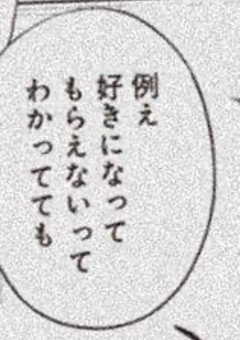 例え
好きになって
もらえないって
わかってても